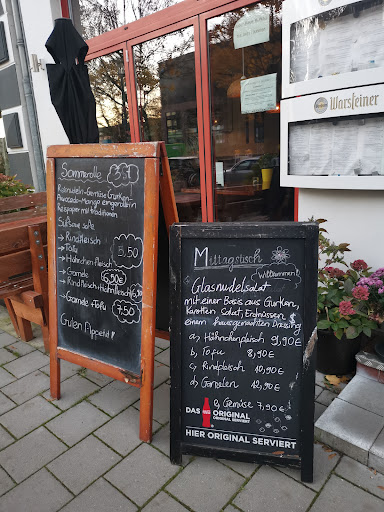 Sommerrolle 3,50
Reisnudeln-Gemüse Gurken-
Avocado-Mango eingerollt in
Reispapier mit traditionen
Süßsaure soße
→ Rindfleisch
→ Tofu 5,50
→ Hähnchen-fleisch
→ Garnele 6,50€
→ Rindfleisch + Hähnchenfleisch 6,90
→ Garnele + Tofu 7,50
Guten Appetit!
Mittagstisch
Willkommen!
Glasnudelsalat
mit einer Basis aus Gurken,
Karotten, Salat, Erdnüssen,
einem hausgemachten Dressing
a, Hähnchenfleisch 9,90€
b, Tofu 8,90€
c, Rindfleisch 10,90€
d, Garnelen 12,90€
e, Gemüse 7,90€
DAS ORIGINAL
ORIGINAL SERVIERT
HIER ORIGINAL SERVIERT
Warsteiner
Warsteiner